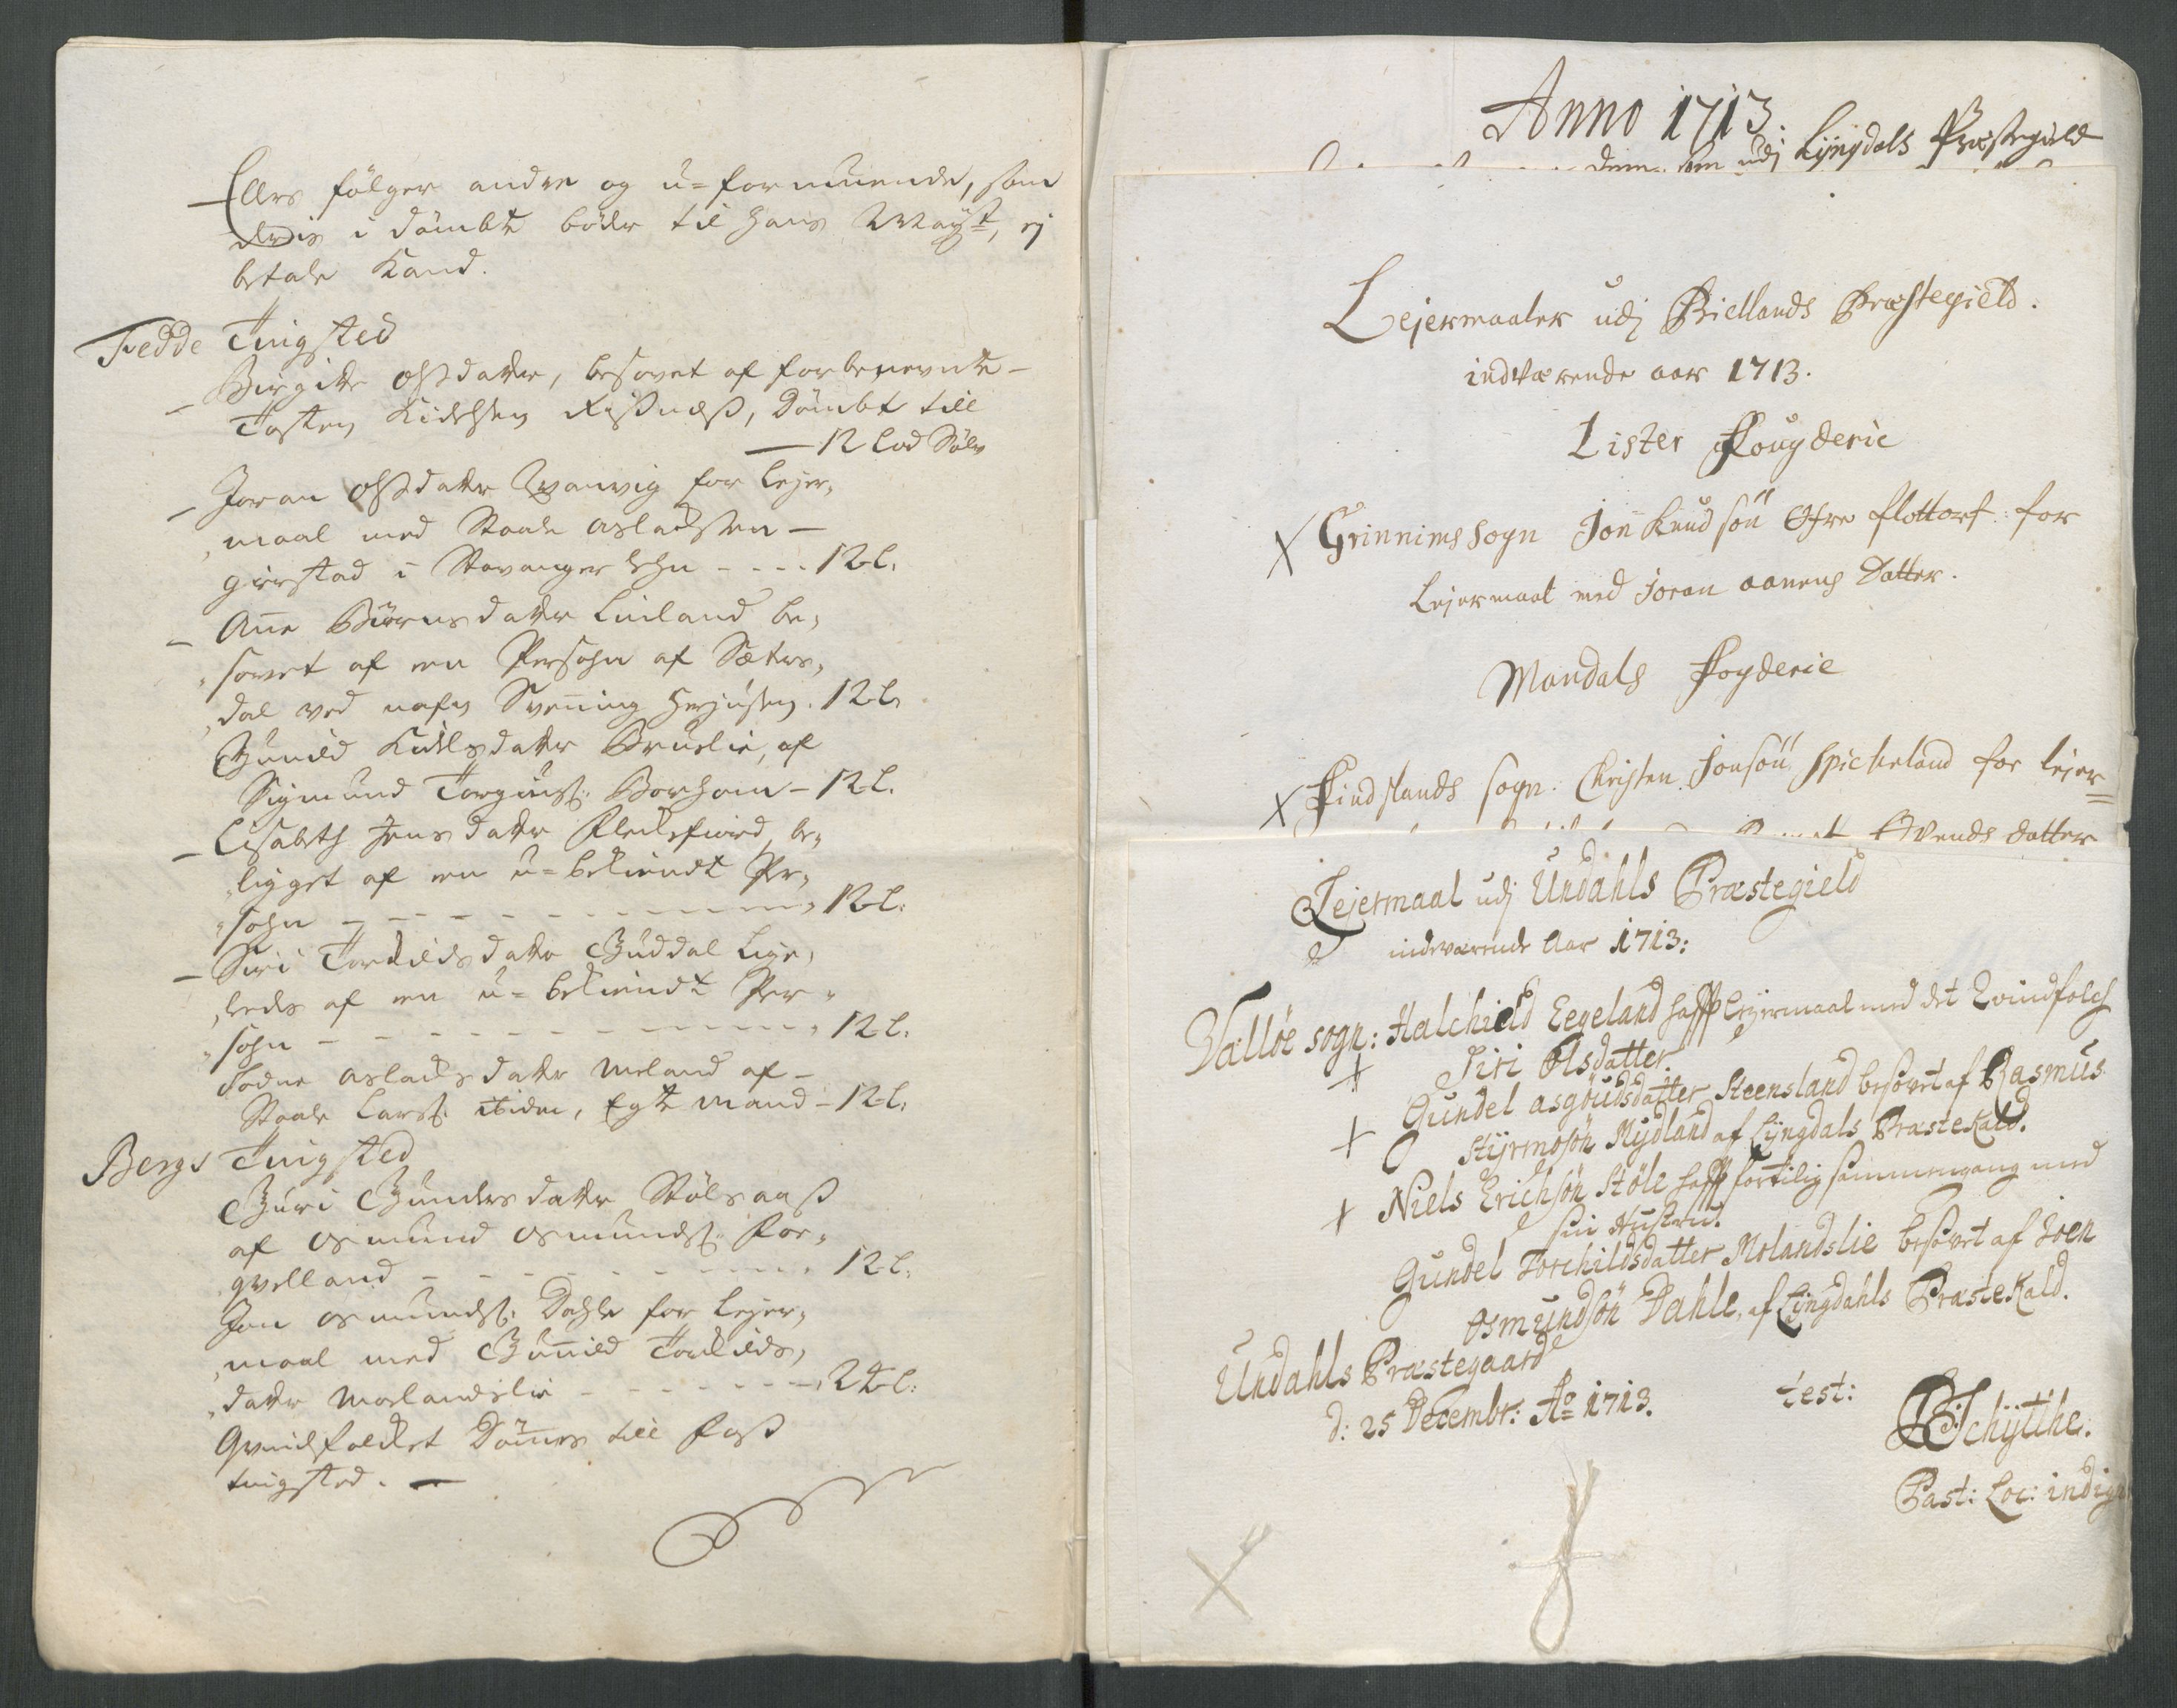 Ellers følger andre og u=formuende, som
deris i dømbte bøder til hans Mayst, ej
betale Kand.
Fedde Tingsted
Birgitte Olsdatter, besovet af forbenevnte
Tosten Kidelsen Risnæs, dømbt till
12 Lod Sølv
Joran Olsdatter Qvanvig for Lejer,
maal med Staale Aslaksen
girstad i Stavanger Lehn - - - - 12 L.
Anne Biørns datter Liiland be,
sovet af een Persohn af Sæters,
dal ved nafn Svenning Herjusen. 12 L.
Gunild Kidels datter Bruslie, af
Sigmund Torgiusß: Borhom - 12 L.
Lisabeth Jens datter Flekefiord, be,
ligget af een u=bekiendt Per,
sohn - - - - - - 12 L:
Siri Torkilds datter Guddal Lige,
leeds af een u=bekiendt Per,
sohn - - - - - - 12 L.
Todne Aslaks datter Meland af
Staale Larsß. ibidem, Egte Mand - 12 L.
Bergs Tingsted
Guri Gunders datter Stølsaas
af Osmund Osmundsß. For,
gvelland - - - - - - 12 L.
Jon Osmundsß. Dahle for Lejer,
maal med Gunild Torkilds,
datter Molandslie - - - - - - 24 L:
Qvindfolcket Dømmes till Foss
tingsted.
Anno 1713.
udj Lyngdals Præstegield
Lejermaaler udj Biellands Præstegield.
indværende aar 1713.
Lister Fougderie
X Grinnims Sogn Jon Knudsøn Øfre Flottorf. for
Lejermaal med Joran Aanens Datter.
Mandals Fogderie
X Findslands sogn. Christen Jonsøn Spickeland for lejer=
Evends datter
Lejermaal udj Undahls Præstegield
indeværende Aar 1713:
Valløe sogn: Halchield Eegeland hafft lejermaal med det Qvindfolch
+ Siri Olsdatter.
+ Gundel Asgoudsdatter Steensland besovet af Rasmus
Styrmosøn Mydland af Lyngdals Præstekald.
+ Niels Erichsøn Støle hafft fortilig sammengang med
sin Hustru.
Gundel Torchildsdatter Molandslie besovet af Joen
Osmundsøn Dahle, af Lingdahls Præstekald.
Undahls Præstegaard
d: 25 Decembr: Ao 1713.
test:
Schytthe.
Past: Loc: indign